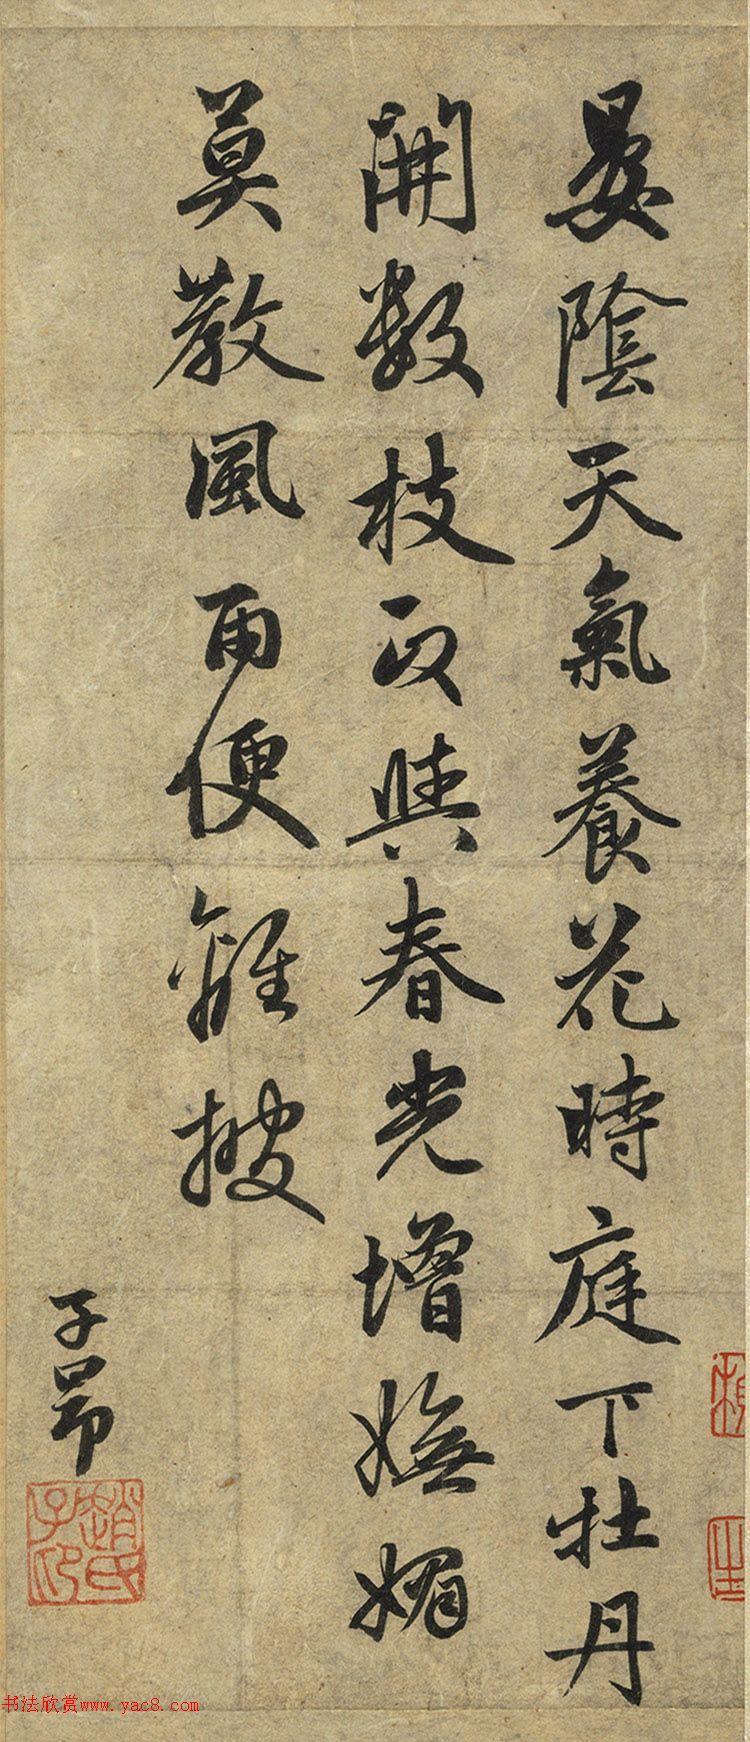 晏陰天氣養花時庭下牡丹
開數枝正與春光增嫵媚
莫教風雨便離披
子昂
趙氏子昂
书法欣赏www.yac8.com